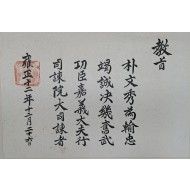 教旨
朴文秀爲輸忠
竭誠決幾奮武
功臣嘉義大夫行
司諫院大司諫者
雍正十二年十二月二十六日